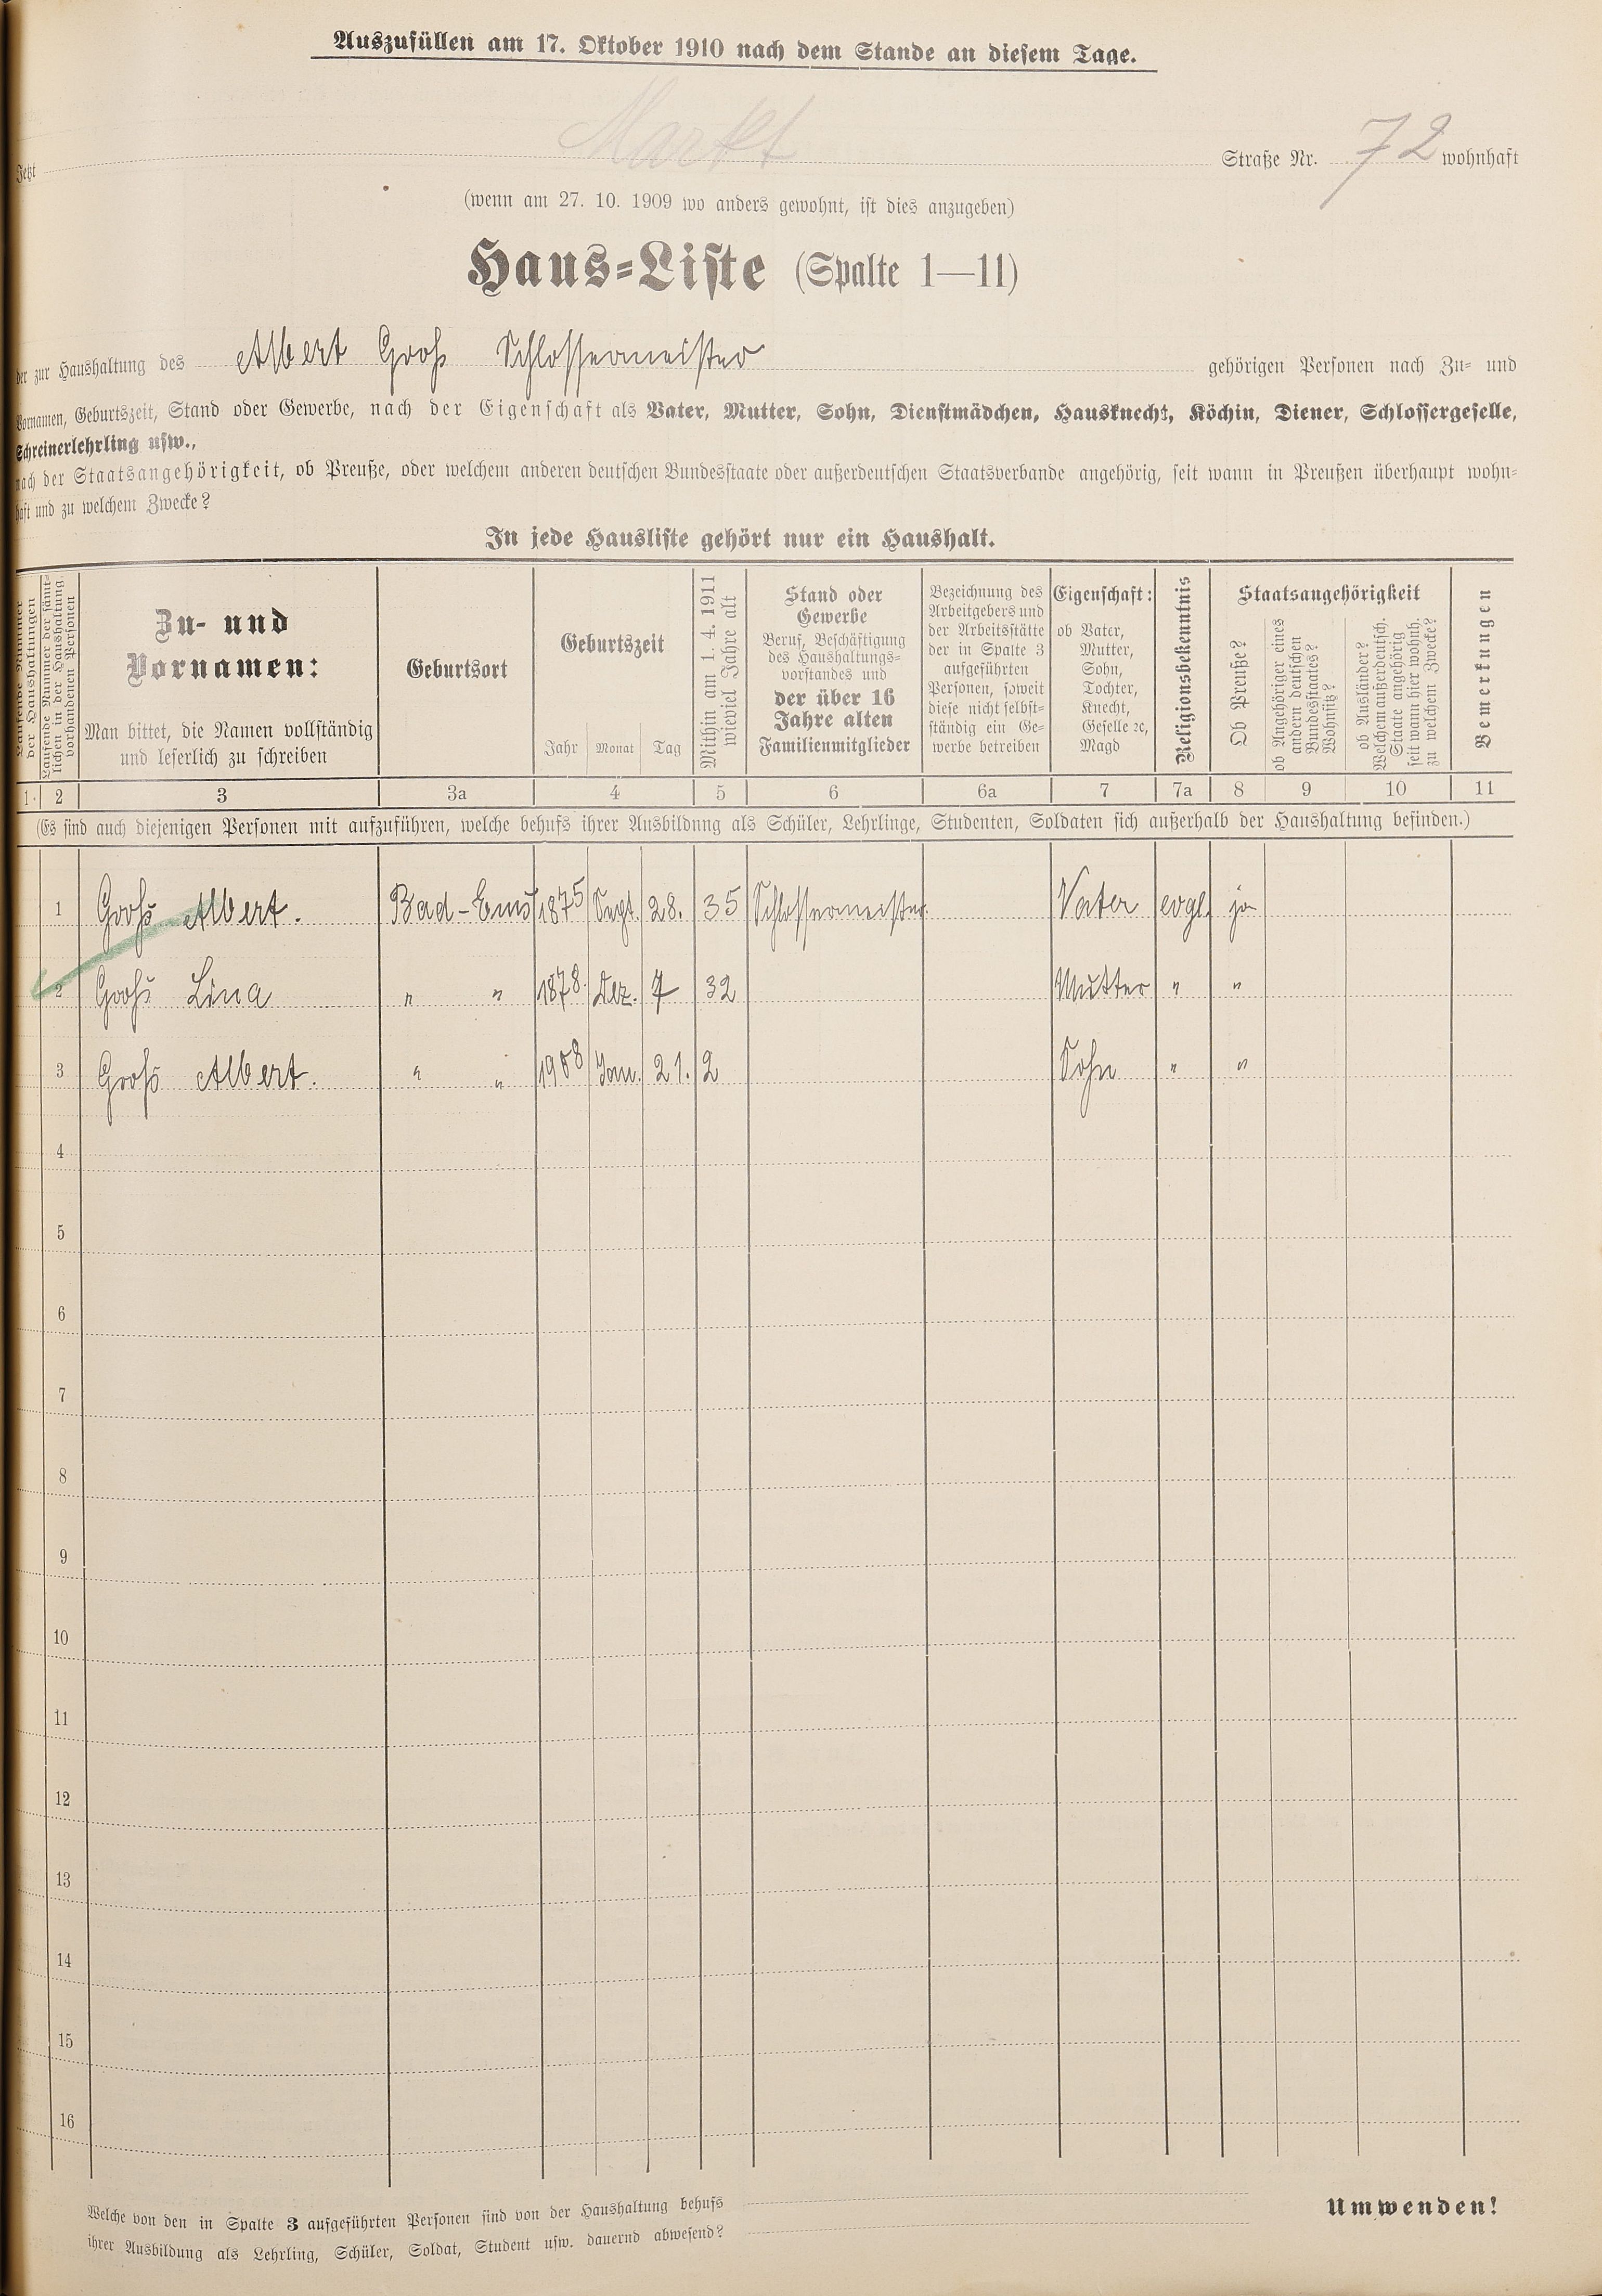 Auszufüllen am 17. Oktober 1910 nach dem Stande an diesem Tage.
Jetzt Markt Straße Nr. 72 wohnhaft
(wenn am 27. 10. 1909 wo anders gewohnt, ist dies anzugeben)
Haus-Liste (Spalte 1—11)
der zur Haushaltung des Albert Groß Schlossermeister gehörigen Personen nach Zu- und
Vornamen, Geburtszeit, Stand oder Gewerbe, nach der Eigenschaft als Vater, Mutter, Sohn, Dienstmädchen, Hausknecht, Köchin, Diener, Schlossergeselle,
Schreinerlehrling usw.,
nach der Staatsangehörigkeit, ob Preuße, oder welchem anderen deutschen Bundesstaate oder außerdeutschen Staatsverbande angehörig, seit wann in Preußen überhaupt wohn-
haft und zu welchem Zwecke?
In jede Hausliste gehört nur ein Haushalt.
Laufende Nummer
der Haushaltungen
Laufende Nummer der sämt-
lichen in der Haushaltung
vorhandenen Personen
Zu- und
Vornamen:
Man bittet, die Namen vollständig
und leserlich zu schreiben
Geburtsort
Geburtszeit
Jahr Monat Tag
Mithin am 1. 4. 1911
wieviel Jahre alt
Stand oder
Gewerbe
Beruf, Beschäftigung
des Haushaltungs-
vorstandes und
der über 16
Jahre alten
Familienmitglieder
Bezeichnung des
Arbeitgebers und
der Arbeitsstätte
der in Spalte 3
aufgeführten
Personen, soweit
diese nicht selbst-
ständig ein Ge-
werbe betreiben
Eigenschaft:
ob Vater,
Mutter,
Sohn,
Tochter,
Knecht,
Geselle ꝛc,
Magd
Religionsbekenntnis
Staatsangehörigkeit
Ob Preuße?
ob Angehöriger eines
andern deutschen
Bundesstaates?
Wohnsitz?
ob Ausländer?
Welchem außerdeutsch.
Staate angehörig
seit wann hier wohnh.
zu welchem Zwecke?
Bemerkungen
1 2 3 3a 4 5 6 6a 7 7a 8 9 10 11
(Es sind auch diejenigen Personen mit aufzuführen, welche behufs ihrer Ausbildung als Schüler, Lehrlinge, Studenten, Soldaten sich außerhalb der Haushaltung befinden.)
1 Groß Albert. Bad-Ems 1875 Sept. 28. 35 Schlossermeister. Vater evgl. ja
2 Groß Lina " " 1878. Dez. 7 32 Mutter " "
3 Groß Albert. " " 1908 Jan. 21. 2 Sohn " "
4
5
6
7
8
9
10
11
12
13
14
15
16
Welche von den in Spalte 3 aufgeführten Personen sind von der Haushaltung behufs
ihrer Ausbildung als Lehrling, Schüler, Soldat, Student usw. dauernd abwesend?
Umwenden!